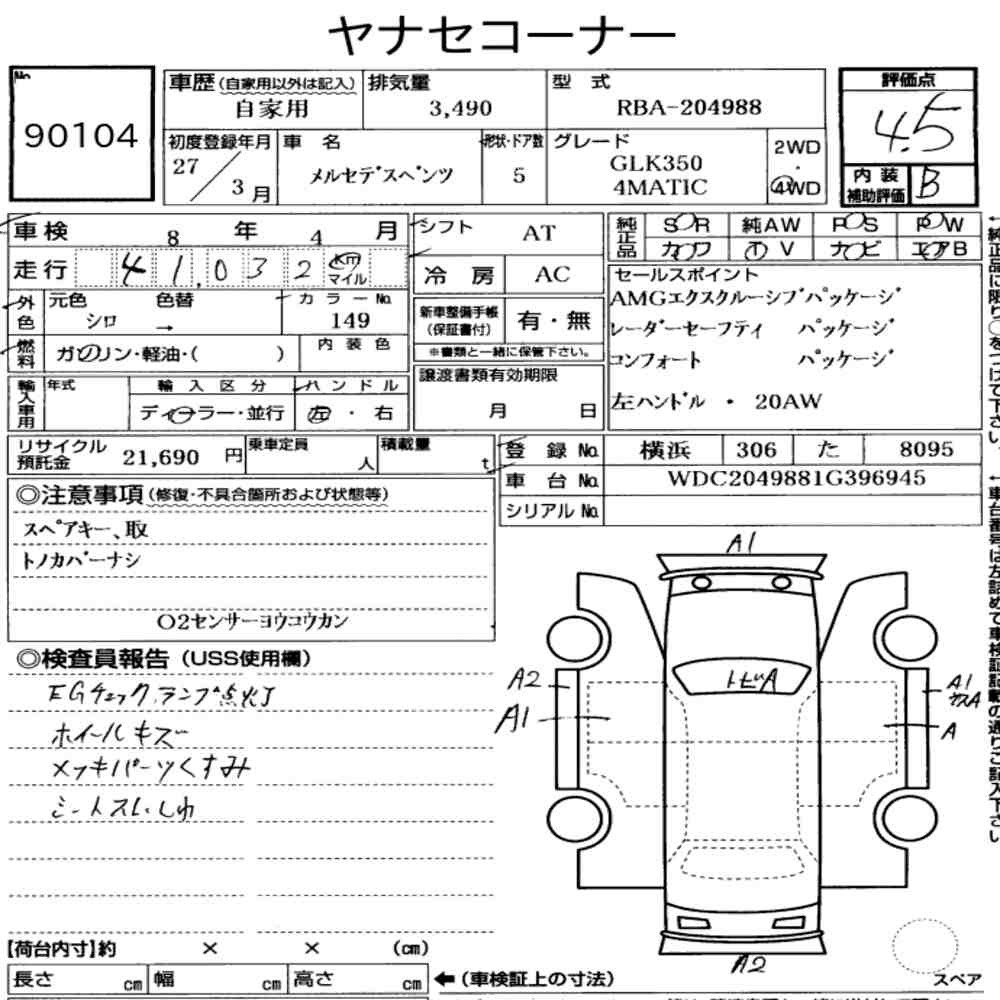 ヤナセコーナー
No.
90104
車歴(自家用以外は記入)
自家用
排気量
3,490
型 式
RBA-204988
評価点
4.5
内装補助評価
B
初度登録年月
27/3月
車 名
メルセデスベンツ
形状・ドア数
5
グレード
GLK350
4MATIC
2WD
・
4WD
車検 8 年 4 月
走行 41,032 km マイル
シフト AT
冷房 AC
純正品
SR 純AW PS PW
カワ TV ナビ エアB
外色
元色 色替 カラーNo.
シロ → 149
燃料
ガソリン・軽油・( )
内装色
新車整備手帳
(保証書付)
有・無
※書類と一緒に保管下さい。
セールスポイント
AMGエクスクルーシブパッケージ
レーダーセーフティ パッケージ
コンフォート パッケージ
左ハンドル ・ 20AW
輸入車用
年式
輸入区分
ディーラー・並行
ハンドル
左・右
譲渡書類有効期限
月 日
リサイクル預託金
21,690 円
乗車定員
人
積載量
t
登録No. 横浜 306 た 8095
車台No. WDC2049881G396945
シリアルNo.
◎注意事項(修復・不具合箇所および状態等)
スペアキー、取
トノカバーナシ
O2センサーヨウコウカン
◎検査員報告(USS使用欄)
EGチェックランプ点灯
ホイールキズ
メッキパーツくすみ
シートスレ、しわ
A1
A2
A1
トビA
A1
A
A2
【荷台内寸】約 × × (cm)
長さ cm 幅 cm 高さ cm
←(車検証上の寸法)
スペア
←純正品に限り○をつけて下さい。
←車台番号は左詰めで車検証記載の通りご記入下さい